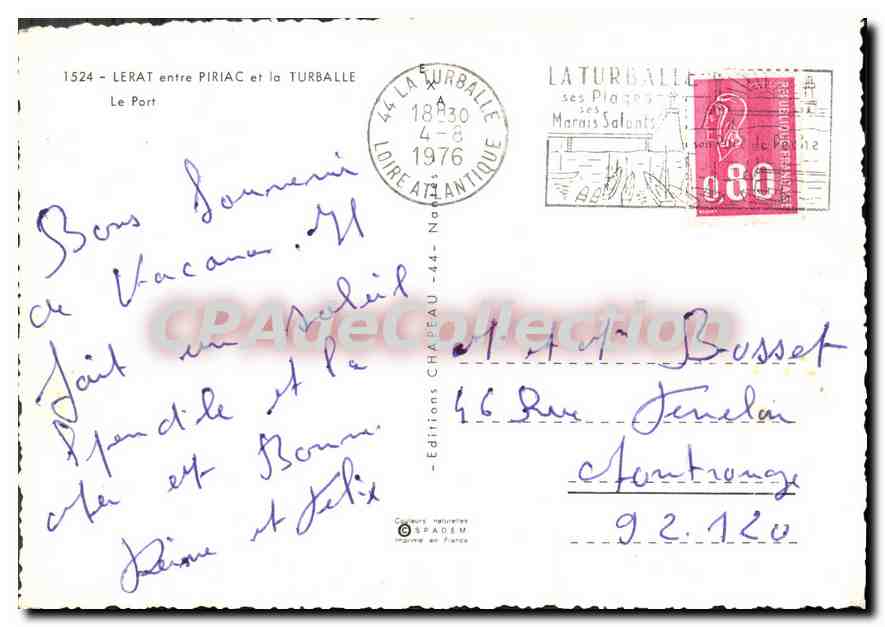 1524 - LERAT entre PIRIAC et la TURBALLE
Le Port
44 LA TURBALLE
18H30
4-8
1976
LOIRE ATLANTIQUE
LA TURBALLE
ses Plages
ses
Marais Salants
son de Pêche
REPUBLIQUE FRANCAISE
0,80
Bons Souvenir
de Vacances. Il
fait un soleil
splendide et la
mer est Bonne.
et Felix
- Editions CHAPEAU - 44 - Nantes
CPAdeCollection
M et Mme Bosset
46 Rue Fenelon
Montrouge
92.120
Couleurs naturelles
© SPADEM
Imprimé en France